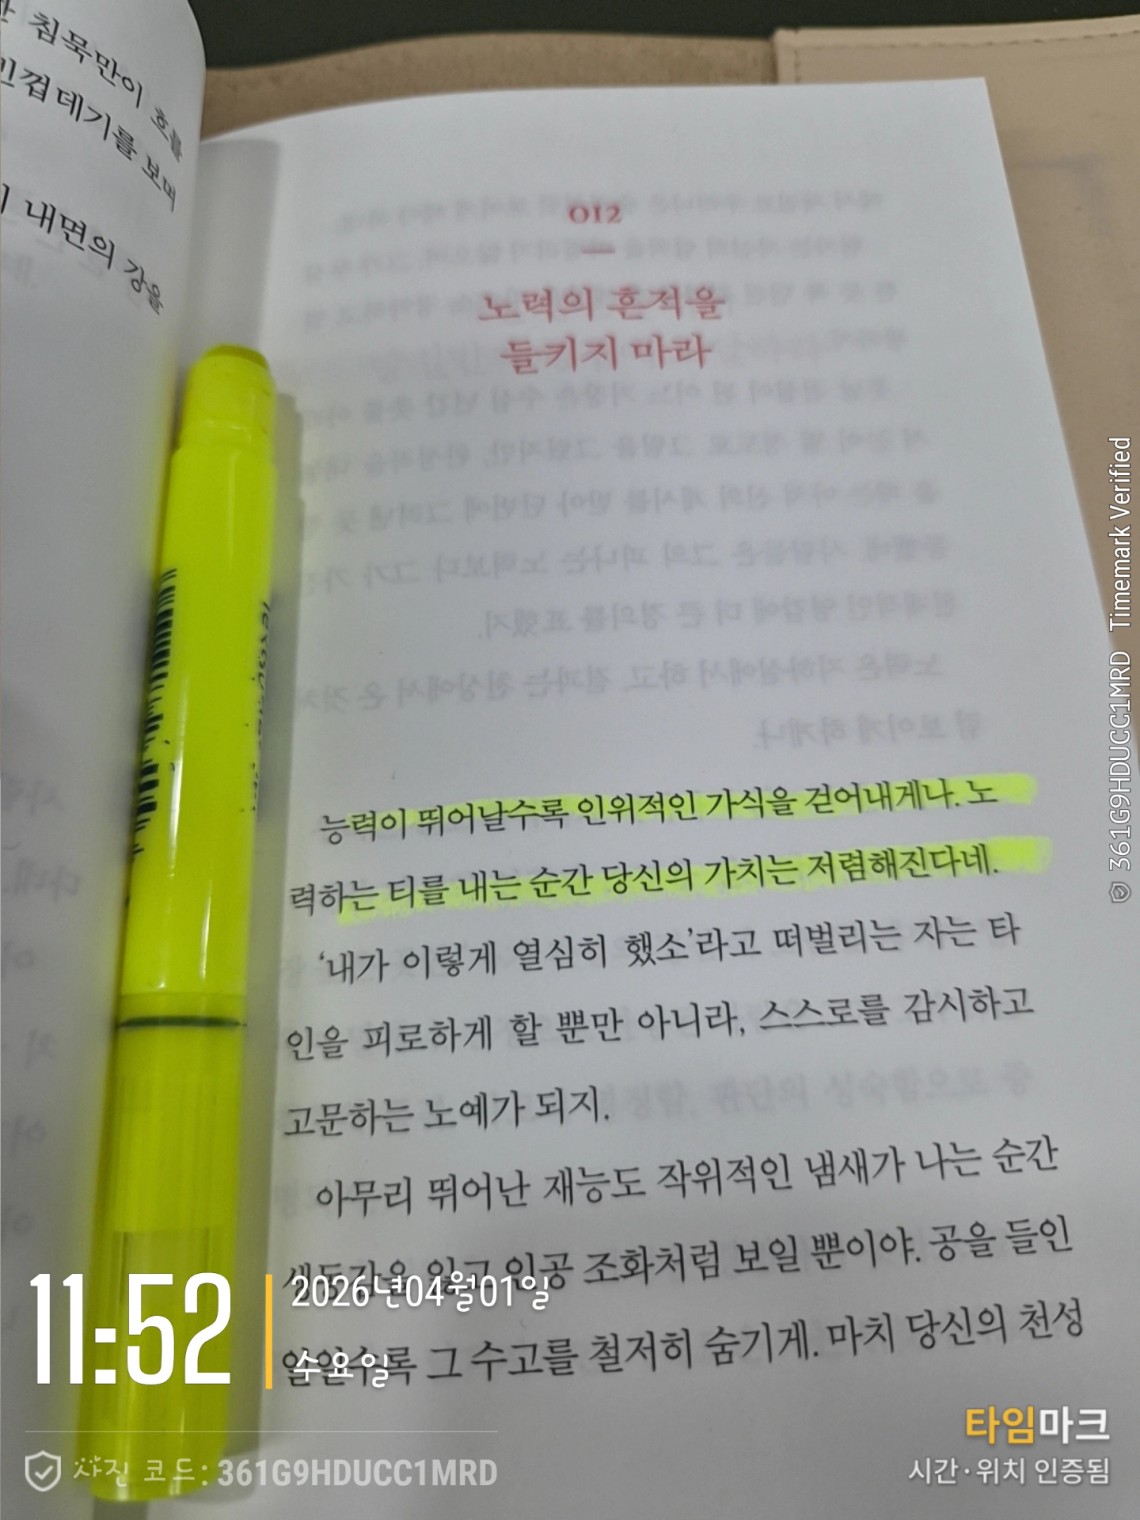 침묵만이 흐를
껍데기를 보며
내면의 강을
012
노력의 흔적을
들키지 마라
능력이 뛰어날수록 인위적인 가식을 걷어내게나. 노
력하는 티를 내는 순간 당신의 가치는 저렴해진다네.
‘내가 이렇게 열심히 했소’라고 떠벌리는 자는 타
인을 피로하게 할 뿐만 아니라, 스스로를 감시하고
고문하는 노예가 되지.
아무리 뛰어난 재능도 작위적인 냄새가 나는 순간
생동감을 잃고 인공 조화처럼 보일 뿐이야. 공을 들인
일일수록 그 수고를 철저히 숨기게. 마치 당신의 천성
11:52
2026년04월01일
수요일
사진 코드: 361G9HDUCC1MRD
타임마크
시간·위치 인증됨
361G9HDUCC1MRD Timemark Verified